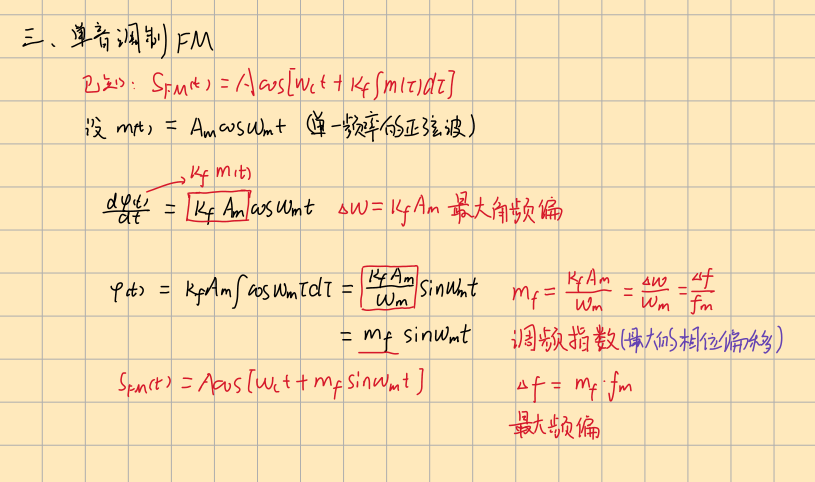 三、单音调制FM
已知: S_FM(t) = A cos[ω_c t + K_f ∫m(τ)dτ]
设 m(t) = A_m cos ω_m t (单一频率的正弦波)
K_f m(t)
dφ(t)/dt = K_f A_m cos ω_m t Δω = K_f A_m 最大角频偏
φ(t) = K_f A_m ∫cos ω_m τ dτ = K_f A_m/ω_m sin ω_m t m_f = K_f A_m/ω_m = Δω/ω_m = Δf/f_m
= m_f sin ω_m t 调频指数(最大的相位偏移)
S_FM(t) = A cos[ω_c t + m_f sin ω_m t] Δf = m_f · f_m
最大频偏